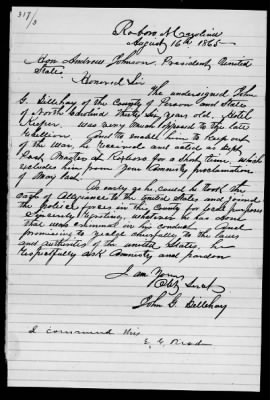 317/3
Roxboro N Carolina
August 16th 1865
Hon Andrew Johnson, President United
States,
Honored Sir
The undersigned John
G. Dillehay of the County of Person and State
of North Carolina Thirty Six years old, Hotel
Keeper. Was very much opposed to the late
Rebellion. And to enable him to Keep out
of the war, he received and acted as Dept
Post Master at Roxboro for a Short time, which
excludes him from your Amnesty proclamation
of May last.
As early as he could he took the
oath of Allegiance to the United States and joined
the police forces in this County for like purposes
Sincerely regretting whatever he has done
that was criminal in his conduct. And
promising to yield cheerfully to the laws
and authorities of the United States, he
respectfully ask Amnesty and pardon
I am Yours
Obt Servt
John G Dillehay
I commend this
E. G. Reade